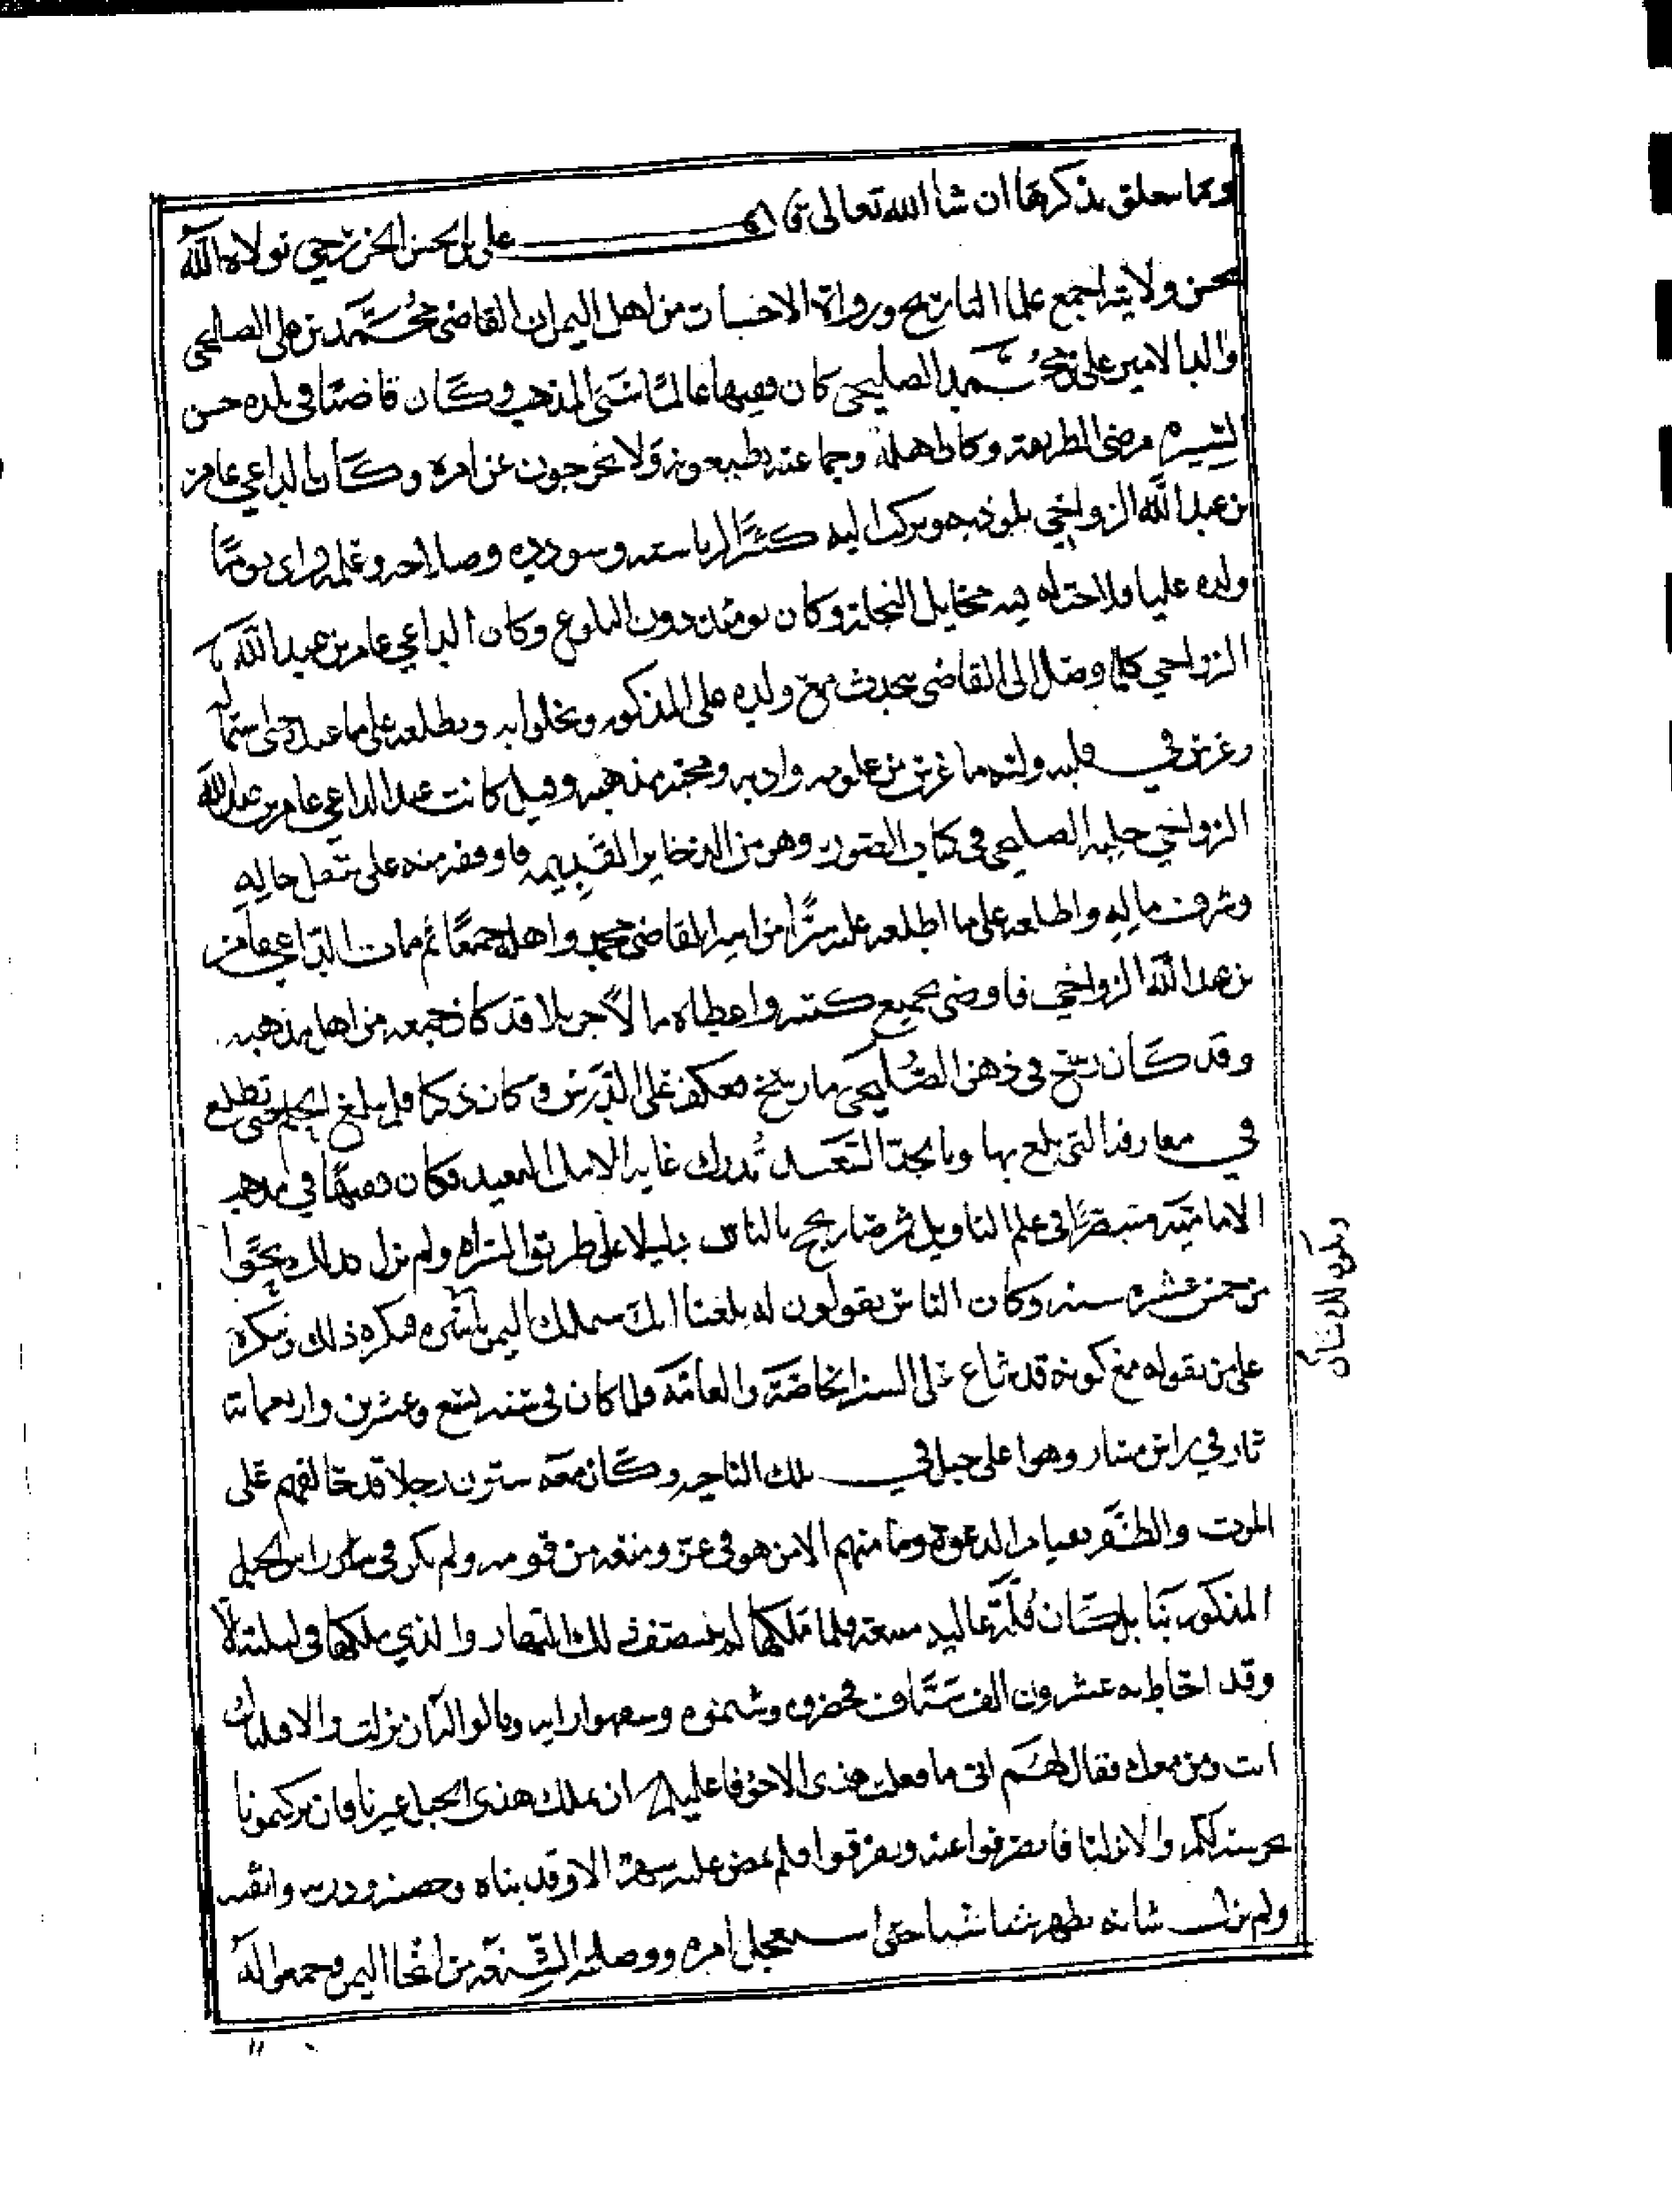 وما يتعلق بذكرها ان شا الله تعالى قال علي بن الحسن الخزرجي تولاه الله
بحسن ولايته اجمع علما التاريخ ورواة الاخبار من اهل اليمن ان القاضي محمد بن علي الصليحي
والد الامير علي بن محمد الصليحي كان فقيها عالما سني المذهب وكان قاضيا في بلده حسن
السيرة مرضي الطريقة وكان اهله وجماعته يطيعونه ولا يخرجون عن امره وكان الداعي عامر
بن عبد الله الزواحي يلوذ به ويركب اليه كثيرا لرياسته وسودده وصلاحه وعلمه فراى يوما
ولده عليا فلاحت له فيه مخايل النجابة وكان يومئذ دون البلوغ وكان الداعي عامر بن عبد الله
الزواحي كلما وصل الى القاضي يتحدث مع ولده علي المذكور ويخلوا به ويطلعه على ما عنده حتى استماله
وغرس في قلبه ولبه ما غرس من علومه وادبه ومحبة مذهبه وقيل كانت عند الداعي عامر بن عبد الله
الزواحي حلية الصليحي في كتاب الصور وهو من الذخاير القديمة فاوقفه منه على تنقل حاله
وشرف ماله واطلعه على ما اطلعه عليه سرا من ابيه القاضي محمد واهله جميعا ثم مات الداعي عامر
بن عبد الله الزواحي فاوصى بجميع كتبه واعطاه مالا جزيلا قد كان جمعه من اهل مذهبه
وقد كان رسخ في ذهن الصليحي ما رسخ فعكف على الدرس وكان ذكيا فلم يبلغ الحلم حتى تطلع
في معارفه التي بلغ بها وبالجد السعيد تدرك غاية الامل البعيد فكان فقيها في مذهب
الامامية مستبصرا في علم التاويل ثم صار يحج بالناس دليلا على طريق السراه ولم يزل كذلك نحوا
من خمس عشره سنة وكان الناس يقولون له بلغنا انك ستملك اليمن باسره فيكره ذلك وينكره
على من يقوله مع كونه قد شاع على السنة الخاصة والعامة فلما كان في سنة تسع وعشرين واربعمائة
ثار في راس مسار وهو اعلى جبل في تلك الناحية وكان معه ستون رجلا قد حالفهم على
الموت والظفر بقيام الدعوة وما منهم الا من هو في عز ومنعة من قومه ولم يكن في راس الجبل
المذكور بنا بل كان قلة عالية منيعة فلما ملكها لم ينتصف ذلك النهار والذي ملكها في ليلته الا
وقد احاط به عشرون الف سياف فحصروه وشتموه وسفهوا رايه وقالوا له ان نزلت والا قتلناك
انت ومن معك فقال لهم اني ما فعلت هذا الا خوفا عليكم ان يملك هذا الجبل غيرنا فان تركتمونا
نحرسه لكم والا نزلنا فانصرفوا عنه وتفرقوا فلم يمض عليه شهر الا وقد بناه وحصنه ودربه واتقنه
ولم يزل شانه يظهر شيا شيا حتى استفحل امره ووصلته الشيعة من انحا اليمن وجمعوا له